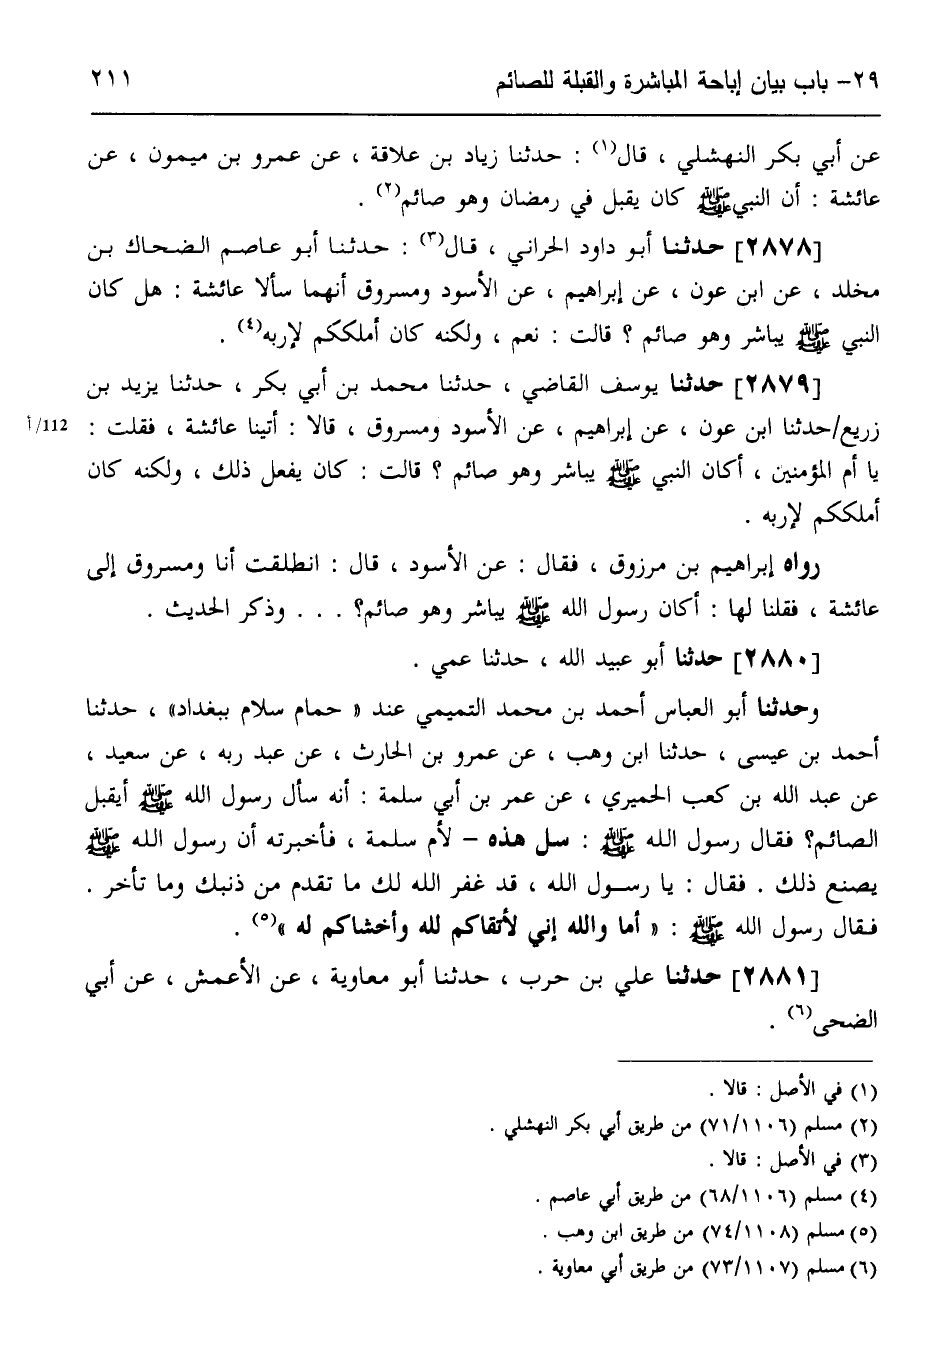 ٢٩- باب بيان إباحة المباشرة والقبلة للصائم ٢١١
عن أبي بكر النهشلي ، قال(١) : حدثنا زياد بن علاقة ، عن عمرو بن ميمون ، عن
عائشة : أن النبي ﷺ كان يقبل في رمضان وهو صائم(٢) .
[٢٨٧٨] حدثنا أبو داود الحراني ، قال(٣) : حدثنا أبو عاصم الضحاك بن
مخلد ، عن ابن عون ، عن إبراهيم ، عن الأسود ومسروق أنهما سألا عائشة : هل كان
النبي ﷺ يباشر وهو صائم ؟ قالت : نعم ، ولكنه كان أملككم لإربه(٤) .
[٢٨٧٩] حدثنا يوسف القاضي ، حدثنا محمد بن أبي بكر ، حدثنا يزيد بن
زريع/حدثنا ابن عون ، عن إبراهيم ، عن الأسود ومسروق ، قالا : أتينا عائشة ، فقلت : 112/أ
يا أم المؤمنين ، أكان النبي ﷺ يباشر وهو صائم ؟ قالت : كان يفعل ذلك ، ولكنه كان
أملككم لإربه .
رواه إبراهيم بن مرزوق ، فقال : عن الأسود ، قال : انطلقت أنا ومسروق إلى
عائشة ، فقلنا لها : أكان رسول الله ﷺ يباشر وهو صائم؟ . . . وذكر الحديث .
[٢٨٨٠] حدثنا أبو عبيد الله ، حدثنا عمي .
وحدثنا أبو العباس أحمد بن محمد التميمي عند « حمام سلام ببغداد» ، حدثنا
أحمد بن عيسى ، حدثنا ابن وهب ، عن عمرو بن الحارث ، عن عبد ربه ، عن سعيد ،
عن عبد الله بن كعب الحميري ، عن عمر بن أبي سلمة : أنه سأل رسول الله ﷺ أيقبل
الصائم؟ فقال رسول الله ﷺ : سل هذه – لأم سلمة ، فأخبرته أن رسول الله ﷺ
يصنع ذلك . فقال : يا رسول الله ، قد غفر الله لك ما تقدم من ذنبك وما تأخر .
فقال رسول الله ﷺ : « أما والله إني لأتقاكم لله وأخشاكم له »(٥) .
[٢٨٨١] حدثنا علي بن حرب ، حدثنا أبو معاوية ، عن الأعمش ، عن أبي
الضحى(٦) .
(١) في الأصل : قالا .
(٢) مسلم (٧١/١١٠٦) من طريق أبي بكر النهشلي .
(٣) في الأصل : قالا .
(٤) مسلم (٦٨/١١٠٦) من طريق أبي عاصم .
(٥) مسلم (٧٤/١١٠٨) من طريق ابن وهب .
(٦) مسلم (٧٣/١١٠٧) من طريق أبي معاوية .